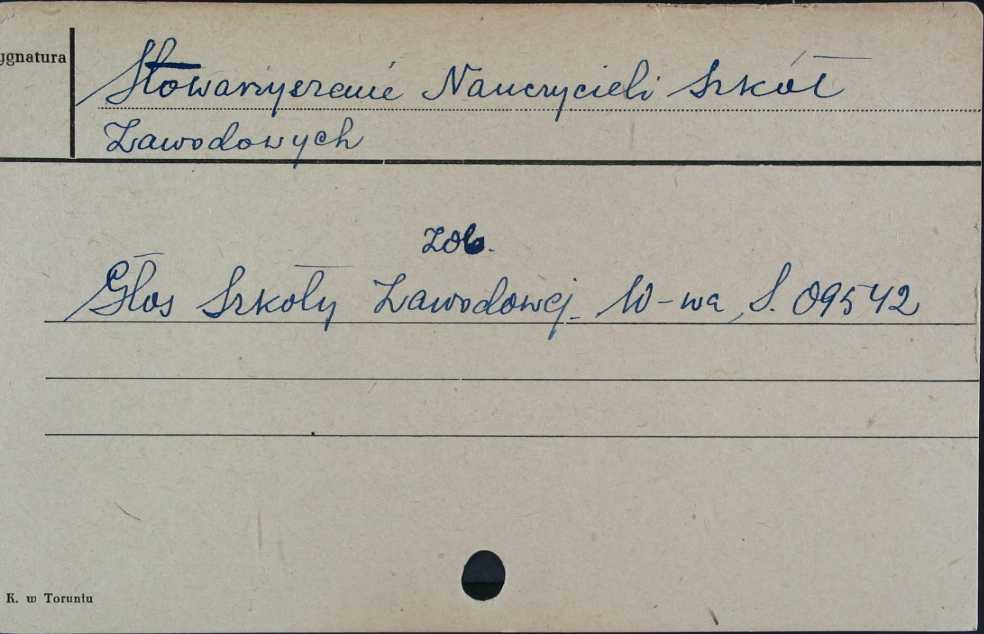 ygnatura
Stowarzyszenie Nauczycieli Szkół
Zawodowych
zob.
Głos Szkoły Zawodowej. W-wa, S. 09542
K. w Toruniu